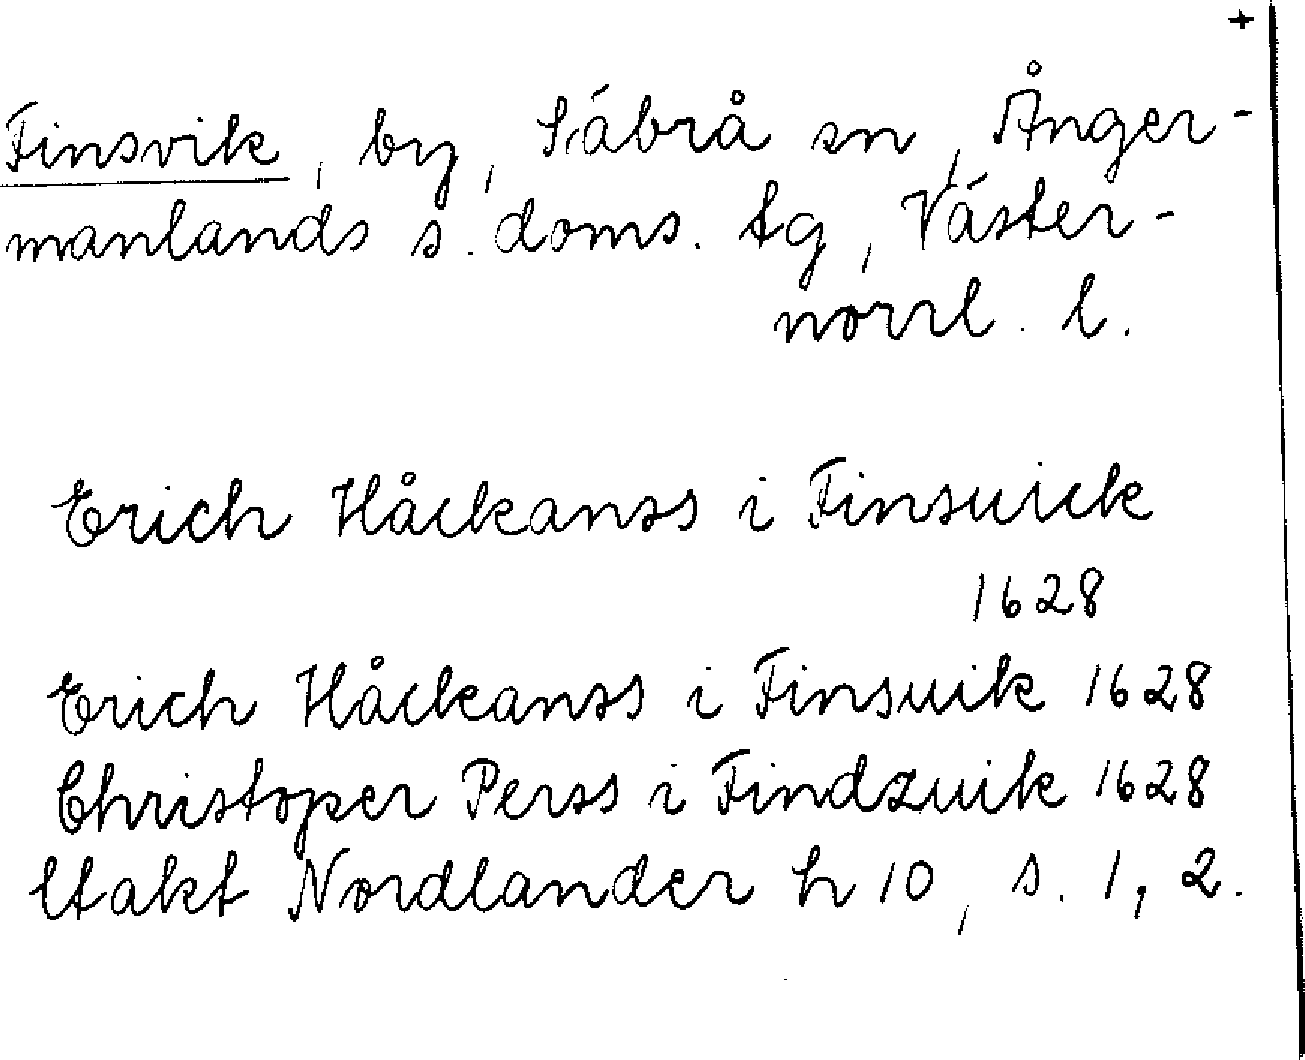 +
Finsvik, by, Säbrå sn, Ånger-
manlands s. doms. tg, Väster-
norrl. l.
Erich Håckanss i Finsuick
1628
Erich Håckanss i Finsuik 1628
Christoper Perss i Findzuik 1628
Utakt Nordlander h 10, s. 1, 2.